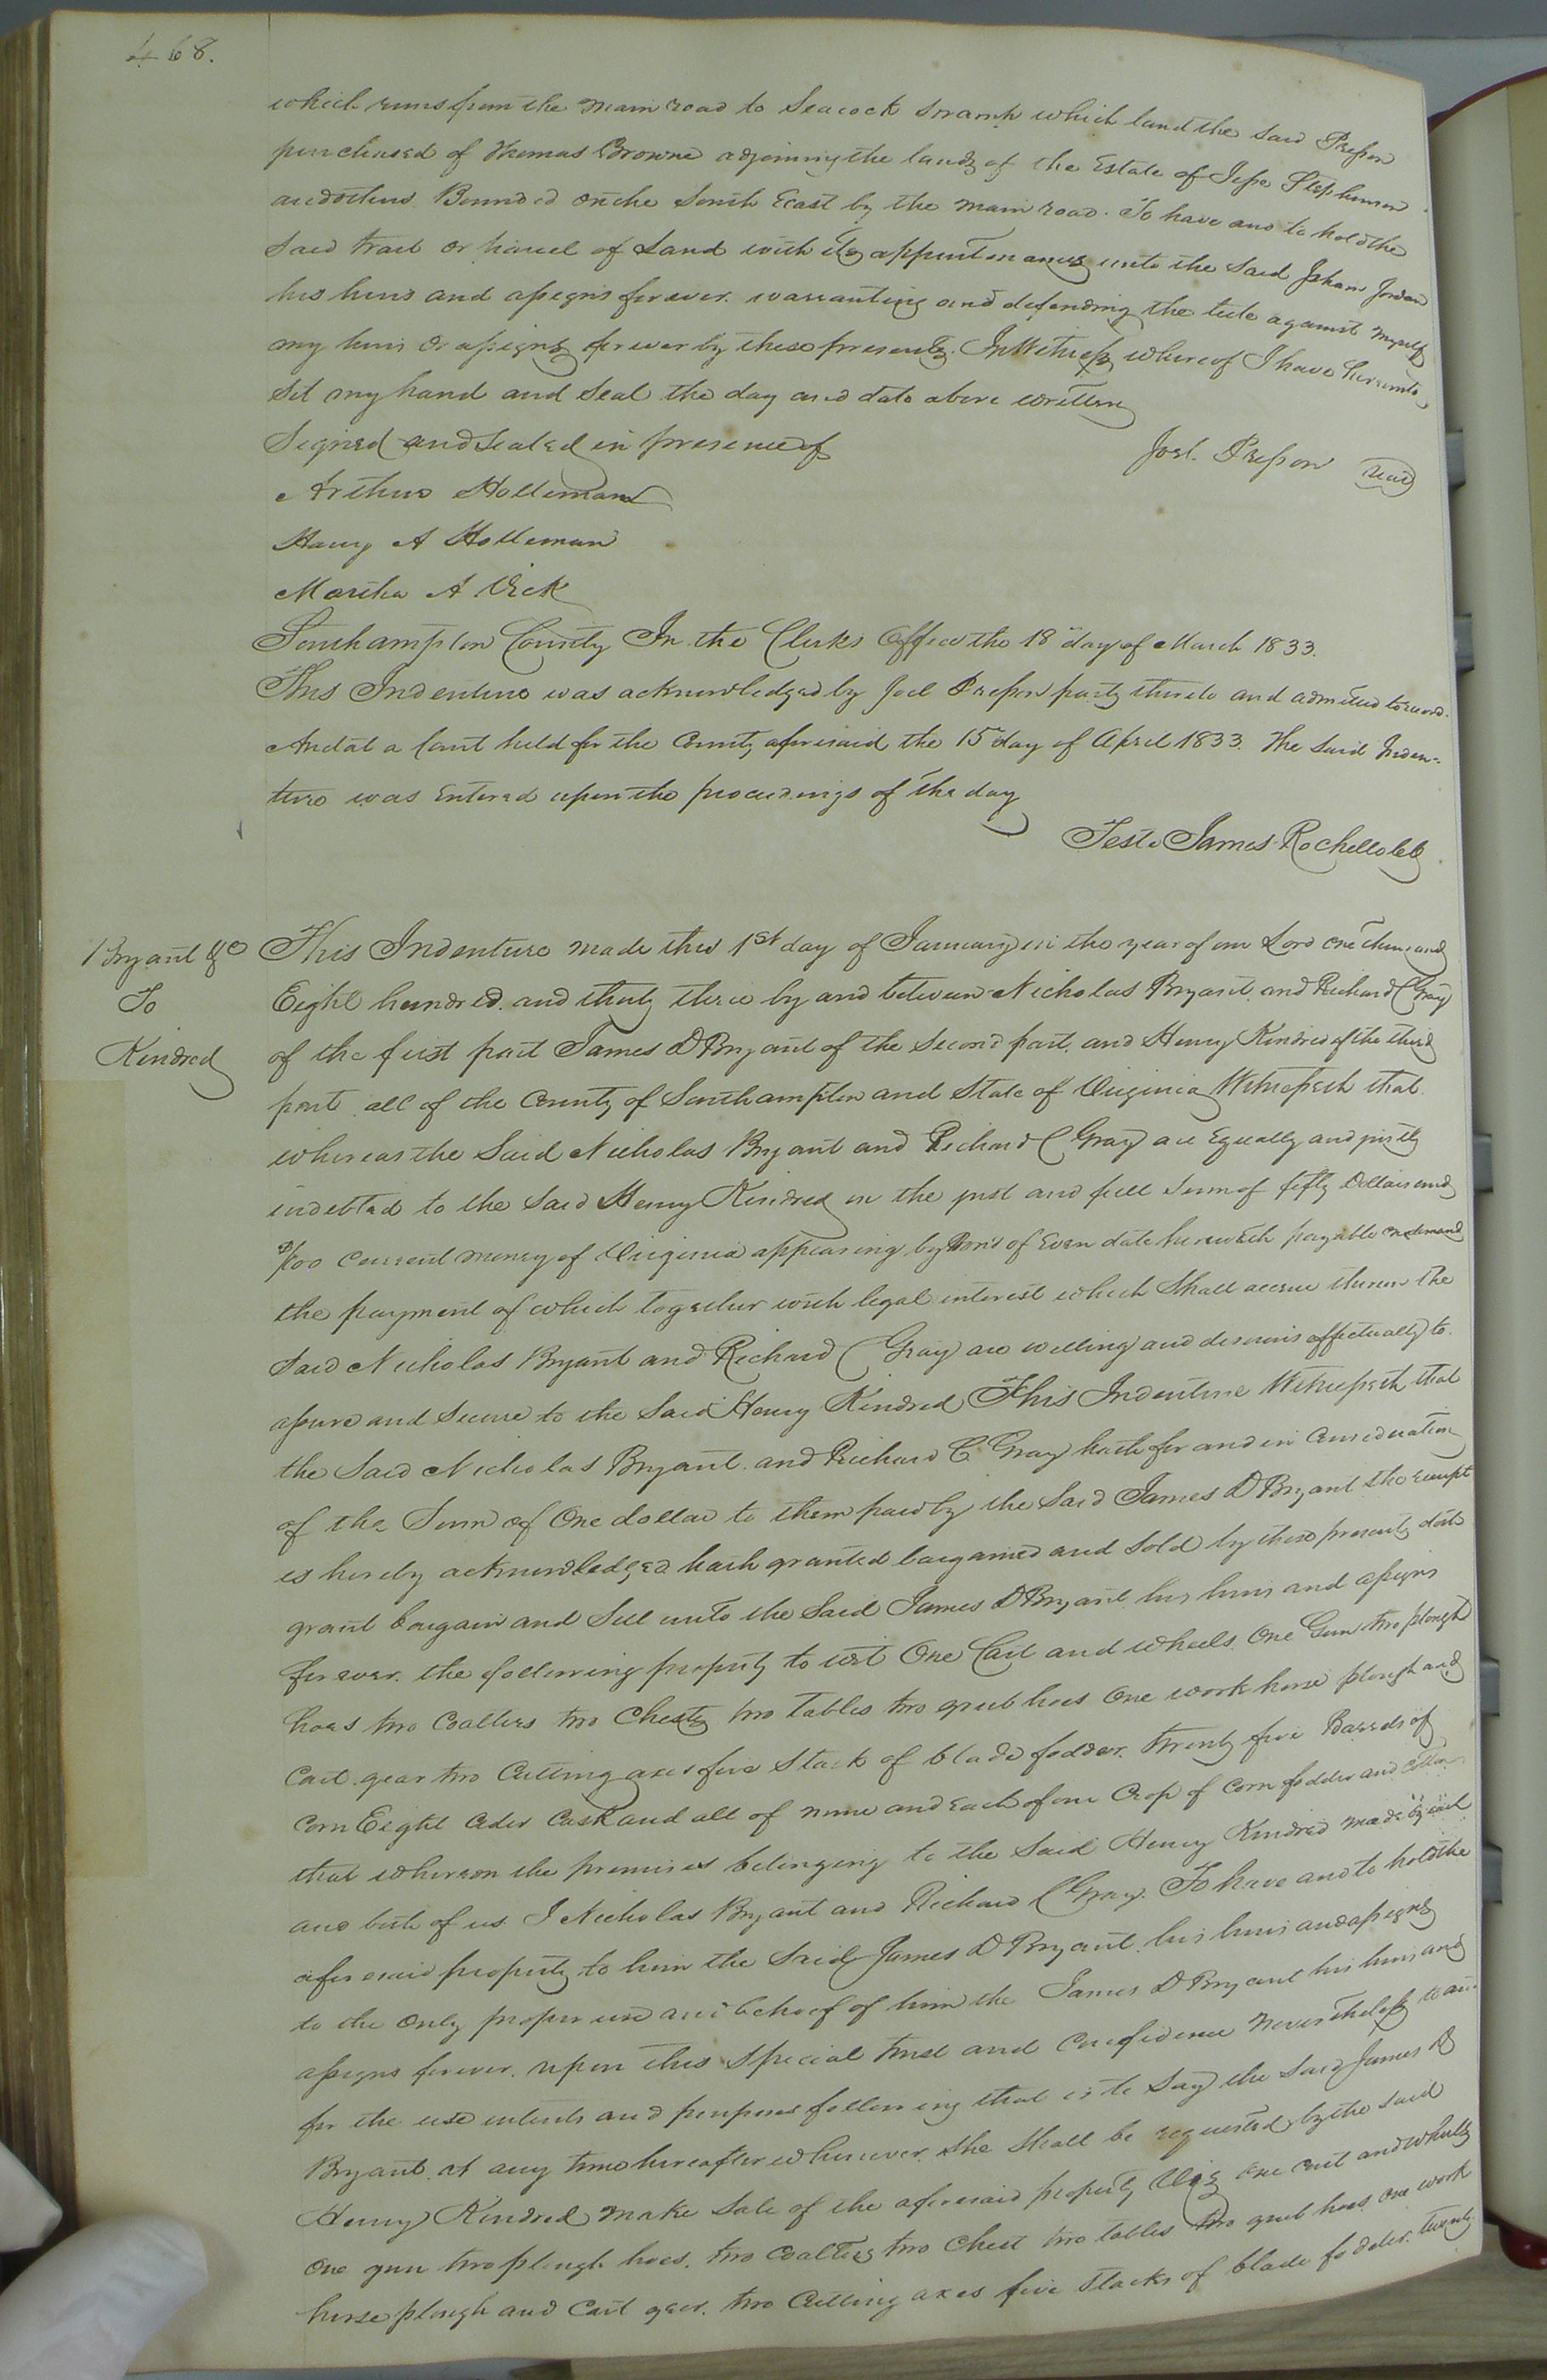 468.
which runs from the main road to Seacock swamp which land the said Presson
purchased of Thomas Browne adjoining the lands of the Estate of Jesse Stephenson
and others Bounded on the South East by the main road. To have and to hold the
said tract or parcel of Land with its appurtenances unto the said Isham Jordan
his heirs and assigns forever. warranting and defending the title against myself
my heirs or assigns forever by these presents. In Witness whereof I have hereunto
set my hand and seal the day and date above written
Signed and sealed in presence of
Joel. Presson seal
Arthur Holleman
Harry A Holleman
Martha A Vick
Southampton County In the Clerks Office the 18 day of March 1833.
This Indenture was acknowledged by Joel Presson party thereto and admitted to record.
And at a Court held for the County aforesaid the 15 day of April 1833. The said Inden=
ture was Entered upon the proceedings of the day
Teste James Rochelle clk
Bryant &c
To
Kindred
This Indenture made this 1st day of January in the year of our Lord one thousand
Eight hundred and thirty three by and between Nicholas Bryant and Richard C Gray
of the first part James D Bryant of the second part. and Henry Kindred of the third
part all of the County of Southampton and State of Virginia Witnesseth that
whereas the Said Nicholas Bryant and Richard C Gray are Equally and justly
indebted to the said Henry Kindred in the just and full sum of fifty Dollars and
/100 current money of Virginia appearing by Bond of Even date herewith payable on demand
the payment of which together with legal interest which shall accrue thereon the
said Nicholas Bryant and Richard C Gray are willing and desirous effectually to
assure and secure to the said Henry Kindred This Indenture Witnesseth that
the said Nicholas Bryant and Richard C Gray hath for and in consideration
of the Sum of One dollar to them paid by the said James D Bryant the receipt
is hereby acknowledged hath granted bargained and sold by these presents doth
grant bargain and sell unto the said James D Bryant his heirs and assigns
forever. the following property to wit One Cart and wheels One Gun two plough
hoes two Coalters two Chests two tables two grub hoes One work horse plough and
Cart gear two Cutting axes five Stack of blade fodder. twenty five Barrels of
Corn Eight Cider Cask and all of mine and each of our Crop of Corn fodder and cotton
that whereon the premises belonging to the said Henry Kindred made by each
and both of us. I Nicholas Bryant and Richard C Gray. To have and to hold the
aforesaid property to him the said James D Bryant his heirs and assigns
to the Only proper use and behoof of him the James D Bryant his heirs and
assigns forever. upon this special trust and confidence nevertheless
for the use intents and purposes following that is to say the said James D
Bryant. at any time hereafter whenever she shall be requested by the said
Henry Kindred make sale of the aforesaid property Viz one cart and wheels
One gun two plough hoes. two Coalters two Chest two tables two grub hoes one work
horse plough and Cart gear. two Cutting axes five stacks of blade fodder. twenty